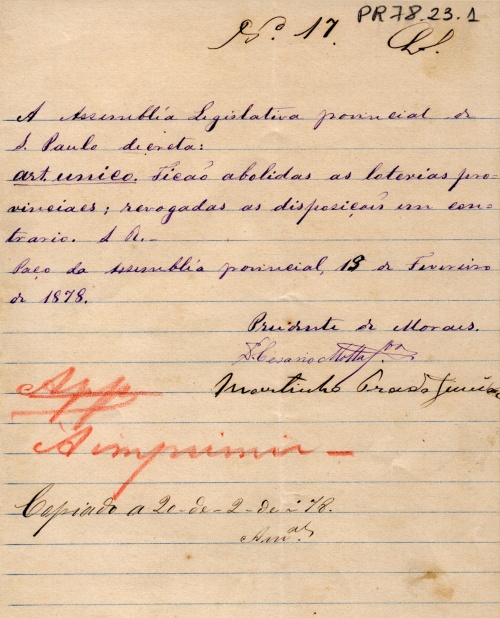 PR78.23.1
Nº. 17.
A Assembléa Legislativa provincial de
S. Paulo decreta:
art. unico. Ficaõ abolidas as loterias pro-
vinciaes; revogadas as disposiçoẽs em con-
trario. S R.—
Paço da Assembléa provincial, 19 de Fevereiro
de 1878.
Prudente de Moraes.
Dr. Cesario Motta Jor
Martinho Prado Junior
App
A imprimir —
Copiado a 20-de-2-de-78.